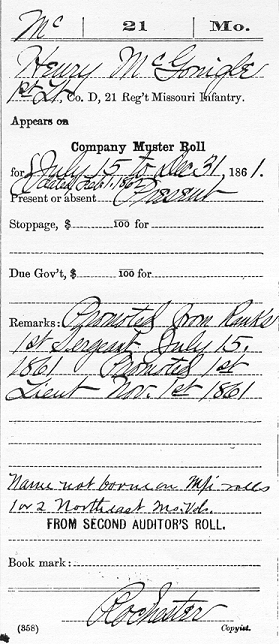 Mc | 21 | Mo.
Henry McGonigle
1st Lt, Co. D, 21 Reg't Missouri Infantry.
Appears on
Company Muster Roll
for July 15 to Dec 31, 1861.
dated Feb 1, 1862
Present or absent Present
Stoppage, $ 100 for
Due Gov't, $ 100 for
Remarks: Promoted from Ranks
1st Sergeant July 15,
1861 Promoted 1st
Lieut Nov. 1st 1861
Name not borne on M/i rolls
1 or 2 Northeast Mo. Vols.
FROM SECOND AUDITOR'S ROLL.
Book mark:
Rochester
(358) Copyist.